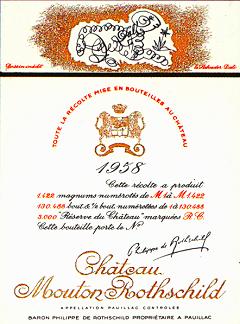 Dessin inédit de Salvador Dali
TOUTE LA RÉCOLTE MISE EN BOUTEILLES AU CHÂTEAU
1958
Cette récolte a produit
1.422 magnums numérotés de M 1 à M 1422
130.488 bout. & ½ bout. numérotées de 1 à 130.488
3.000 "Réserve du Château" marquées R.C.
Cette bouteille porte le N°
Philippe de Rothschild
Château
Mouton Rothschild
APPELLATION PAUILLAC CONTRÔLÉE
BARON PHILIPPE DE ROTHSCHILD PROPRIÉTAIRE A PAUILLAC